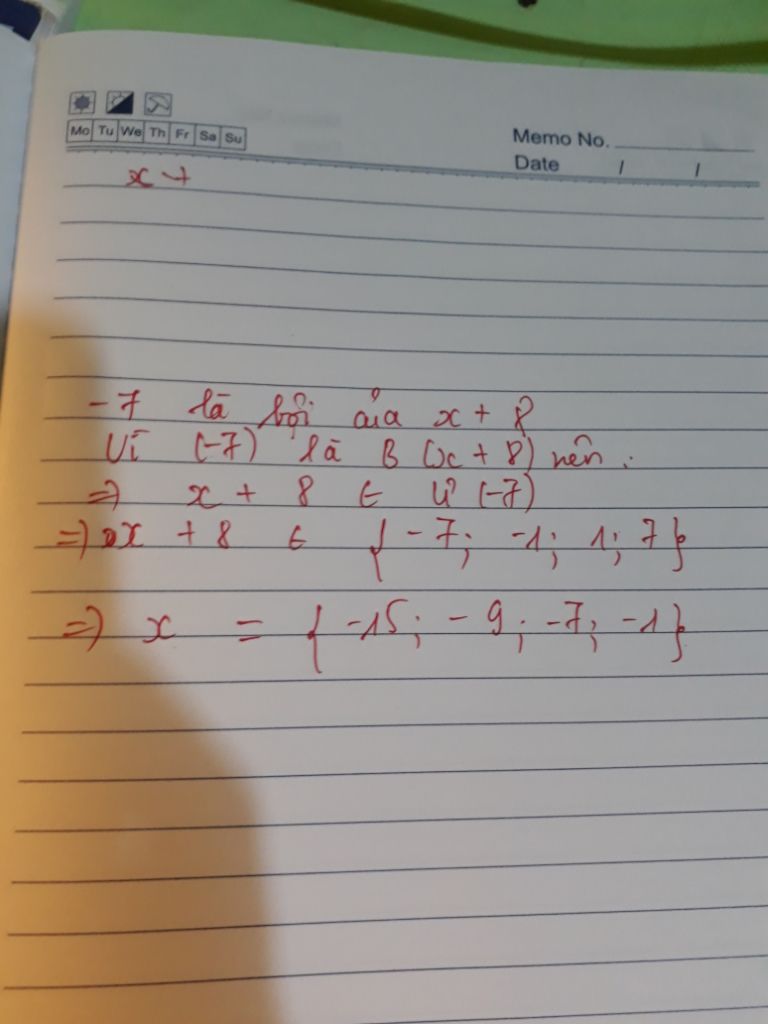 Mo Tu We Th Fr Sa Su
Memo No.
Date / /
x +
-7 là bội của x + 8
Vì (-7) là B (x + 8) nên :
=> x + 8 ∈ Ư (-7)
=> x + 8 ∈ { -7; -1; 1; 7 }
=> x = { -15; -9; -7; -1 }